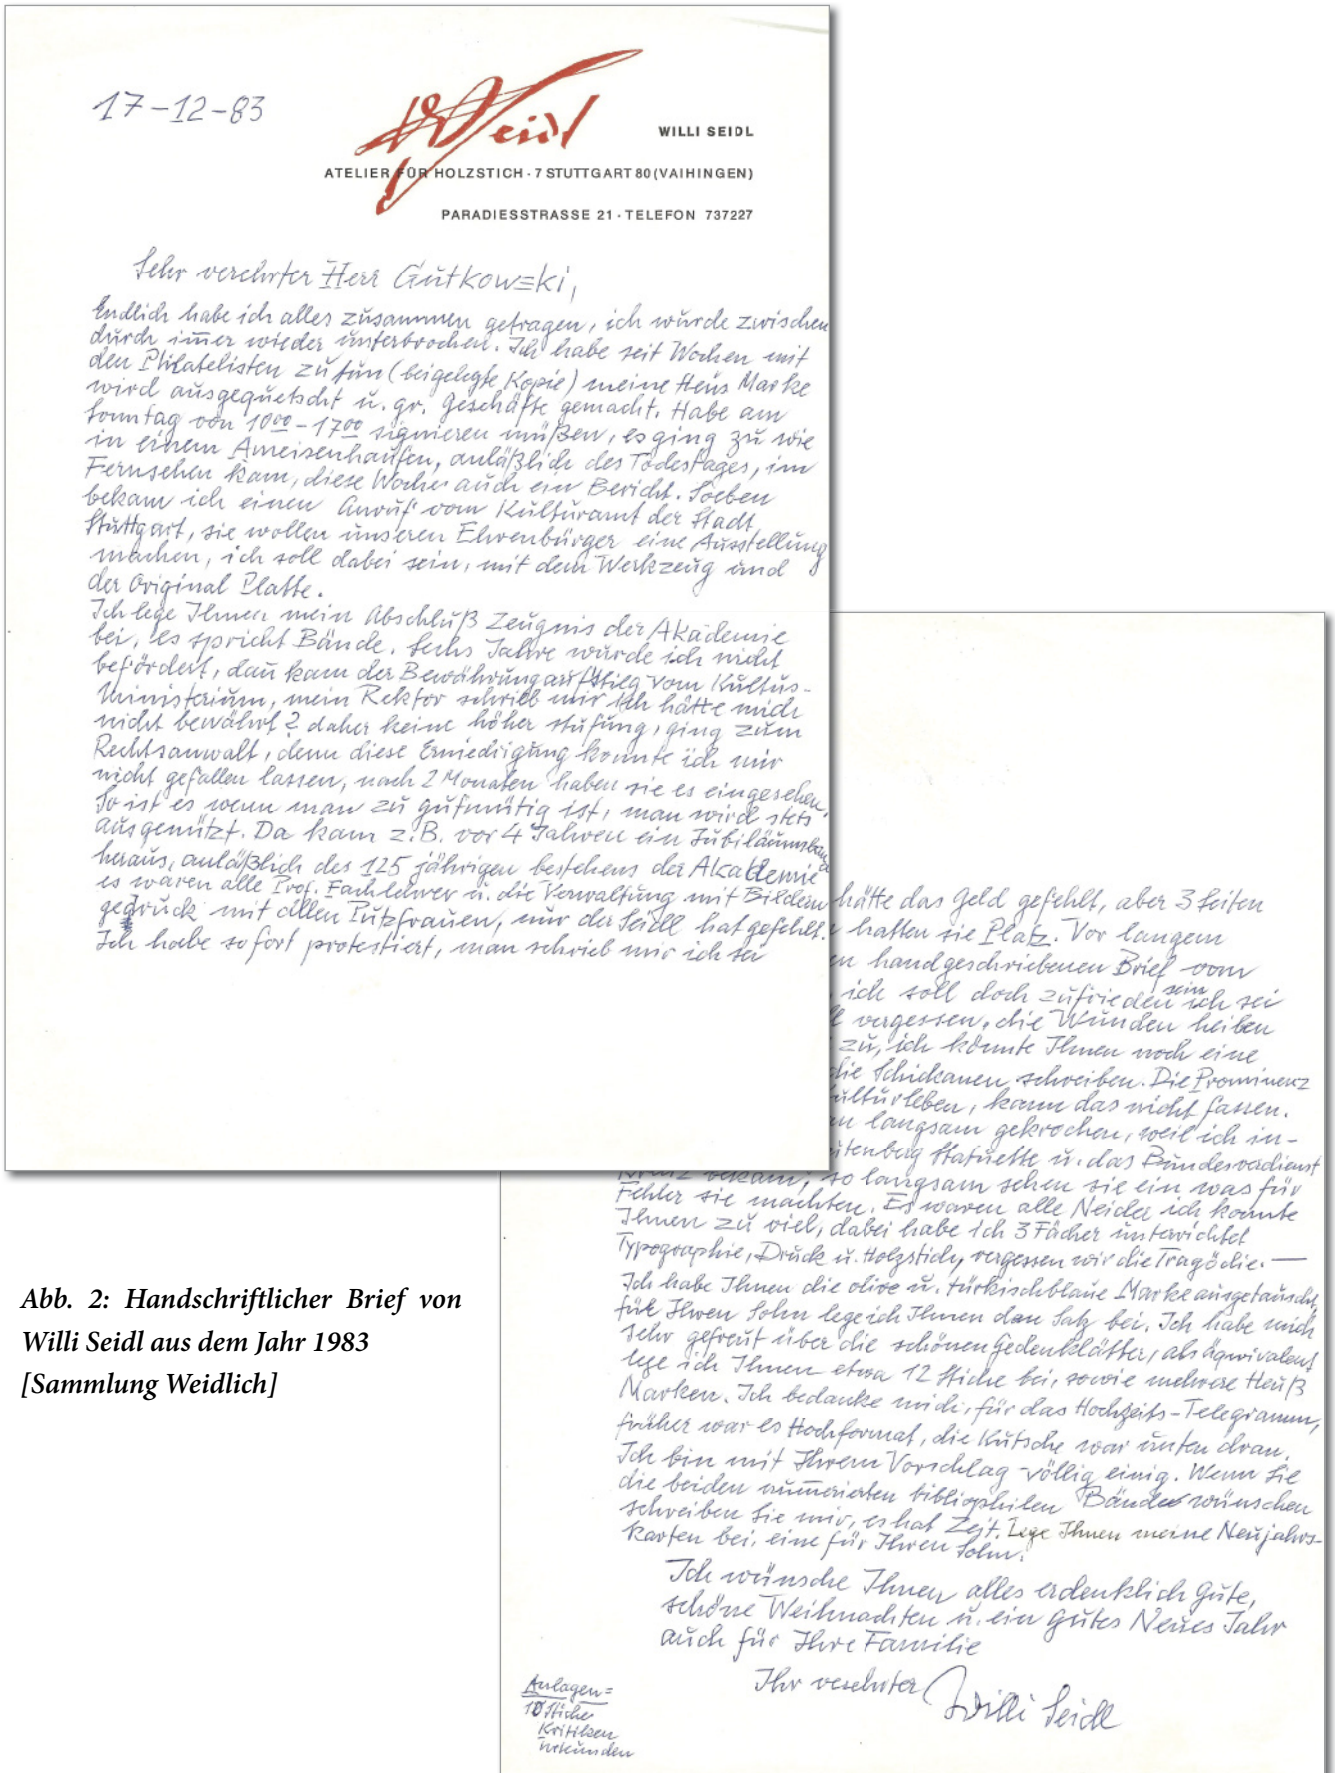 17-12-83
WSeidl
WILLI SEIDL
ATELIER FÜR HOLZSTICH · 7 STUTTGART 80 (VAIHINGEN)
PARADIESSTRASSE 21 · TELEFON 737227
Sehr verehrter Herr Gutkowski,
Endlich habe ich alles zusammen getragen, ich wurde zwischen
durch immer wieder unterbrochen. Ich habe seit Wochen mit
den Philatelisten zu tun (beigelegte Kopie) meine Heus Marke
wird ausgequetscht u. gr. Geschäfte gemacht. Habe am
Sonntag von 10⁰⁰ - 17⁰⁰ signieren müßen, es ging zu wie
in einem Ameisenhaufen, anläßlich des Todestages, im
Fernsehen kam, diese Woche auch ein Bericht. Soeben
bekam ich einen Anruf vom Kulturamt der Stadt
Stuttgart, sie wollen unseren Ehrenbürger eine Ausstellung
machen, ich soll dabei sein, mit dem Werkzeug und
der Original Platte.
Ich lege Ihnen mein Abschluß Zeugnis der Akademie
bei, es spricht Bände. Sechs Jahre wurde ich nicht
befördert, dann kam der Bewährungaufstieg vom Kultus-
Ministerium, mein Rektor schrieb mir ich hätte mich
nicht bewährt? daher keine höher stufung, ging zum
Rechtsanwalt, denn diese Erniedrigung konnte ich mir
nicht gefallen lassen, nach 2 Monaten haben sie es eingesehen.
So ist es wenn man zu gutmütig ist, man wird stets
ausgenützt. Da kam z.B. vor 4 Jahren ein
heraus, anläßlich des 125 jährigen bestehens der Akademie
es waren alle Prof. Fachlehrer u. die Verwaltung mit Bildern
gedruck mit allen Putzfrauen, nur der Seidl hat gefehlt.
Ich habe sofort protestiert, man schrieb mir ich sei
hätte das Geld gefehlt, aber 3 Seiten
hatten sie Platz. Vor langem
handgeschriebenen Brief vom
ich soll doch zufrieden sein ich sei
vergessen, die Wunden heiben
zu, ich könnte Ihnen noch eine
die Schickanen schreiben. Die Prominenz
kann das nicht fassen.
langsam gekrochen, weil ich in-
Statuette u. das Bundesverdienst
bekam, so langsam sehen sie ein was für
Fehler sie machten. Es waren alle Neider ich konnte
Ihnen zu viel, dabei habe ich 3 Fächer unterrichtet
Typographie, Druck u. Holzstich, vergessen wir die Tragödie. —
Ich habe Ihnen die olive u. türkischblaue Marke ausgetauscht,
für Ihren Sohn lege ich Ihnen den Satz bei. Ich habe mich
sehr gefreut über die schönen Gedenkblätter, als äqwivalent
lege ich Ihnen etwa 12 Stiche bei, sowie mehrere Heuß
Marken. Ich bedanke mich, für das Hochzeits-Telegramm,
früher war es Hochformat, die Kutsche war unten dran.
Ich bin mit Ihrem Vorschlag völlig einig. Wenn Sie
die beiden numerierten bibliophilen Bände wünschen
schreiben Sie mir, es hat Zeit. Lege Ihnen meine Neujahrs-
karten bei, eine für Ihren Sohn.
Ich wünsche Ihnen alles erdenklich Gute,
schöne Weihnachten u. ein gutes Neues Jahr
auch für Ihre Familie
Ihr verehrter Willi Seidl
Anlagen=
Stiche
Kritiken
Urkunden
Abb. 2: Handschriftlicher Brief von
Willi Seidl aus dem Jahr 1983
[Sammlung Weidlich]